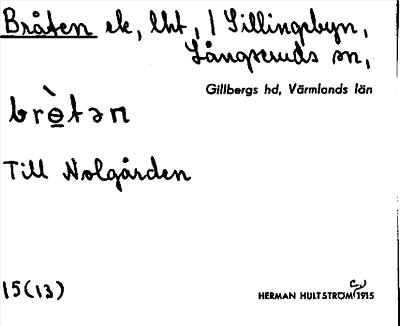 Bråten ek, lht, / Sillingsbyn,
Långseruds sn,
Gillbergs hd, Värmlands län
brètən
Till Nolgården
15(13)
HERMAN HULTSTRÖM 1915